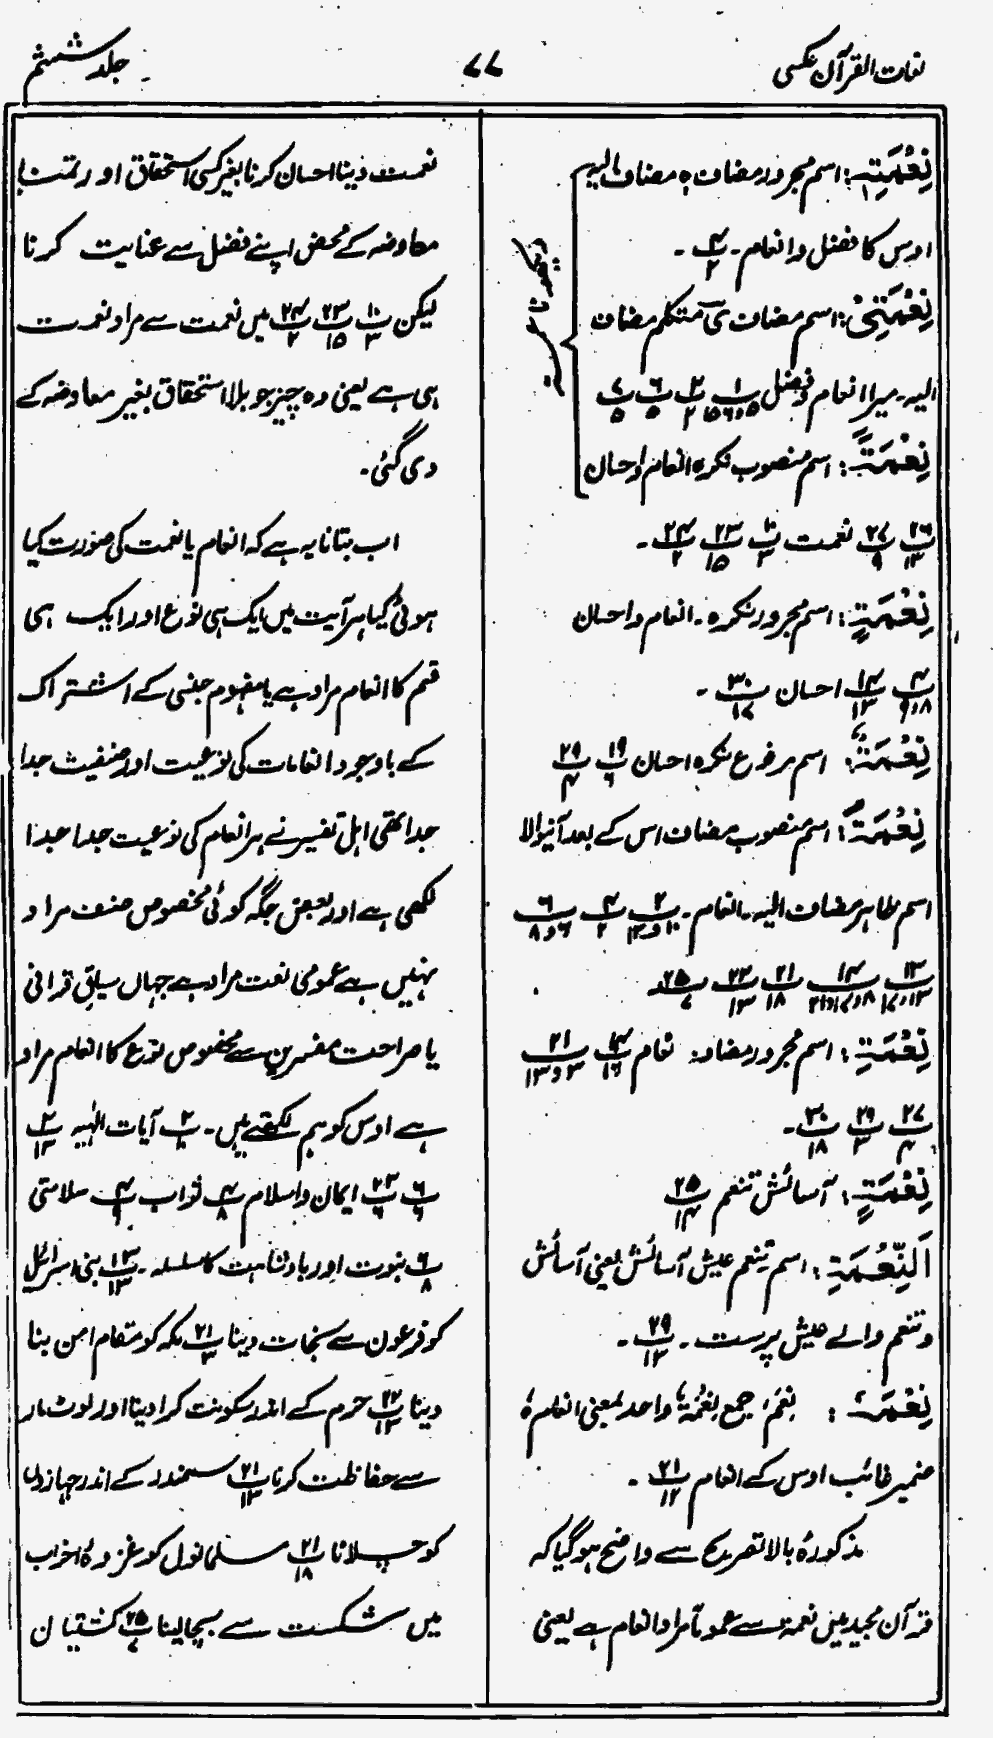 لغات القرآن عکسی
۷۷
جلد ششم
نِعْمَتِہٖ: اسم مجرور مضاف ہ مضاف الیہ
اوس کا فضل و انعام۔ ۴/۲ ۔
نِعْمَتِیْ: اسم مضاف ی متکلم مضاف
الیہ۔ میرا انعام و فضل ۱/۵و۶و۱۵ ۲/۲ ۶/۵ ۷/۵
دیکھو تا
نِعْمَۃً: اسم منصوب نکرہ انعام احسان
۲۶/۱۳ ۲۷/۹ نعمت ۱۰/۳ ۲۳/۱۵ ۲۴/۲ ۔
نِعْمَۃٍ: اسم مجرور نکرہ۔ انعام و احسان
۴/۸و۹ ۱۴/۱۳ احسان ۳۰/۱۷ ۔
نِعْمَۃٌ: اسم مرفوع نکرہ احسان ۱۹/۶ ۲۹/۴
نِعْمَۃَ: اسم منصوب مضاف اس کے بعد آنیوالا
اسم ظاہر مضاف الیہ۔ انعام۔ ۲/۱۰و۱۳ ۴/۲ ۶/۶و۸
۱۳/۱۳و۱۷ ۱۴/۸و۱۷و۲۱ ۲۱/۱۸ ۲۲/۱۳ ۲۵/۷
نِعْمَۃِ: اسم مجرور مضاف۔ انعام ۱۴/۱۶ ۲۱/۳و۱۳
۲۷/۴ ۲۹/۳ ۳۰/۱۸ ۔
نِعْمَۃٍ: آسائش تنعم ۲۵/۱۴
اَلنِّعْمَۃِ: اسم تنعم عیش آسائش یعنی آسائش
و تنعم والے عیش پرست ۔ ۲۹/۱۳ ۔
نِعْمَہٗ : نِعَمٌ، جمع نِعْمَۃٌ واحد بمعنی انعام ہٗ
ضمیر غائب اوس کے انعام ۲۱/۱۲ ۔
مذکورۂ بالا تصریح سے واضح ہو گیا کہ
قرآن مجید میں نعمۃ سے عموماً مراد انعام ہے یعنی
نعمت دینا احسان کرنا بغیر کسی استحقاق اور تمنا یا
معاوضہ کے محض اپنے فضل سے عنایت کرنا
لیکن ۱۰/۳ ۲۳/۱۵ ۲۴/۲ میں نعمت سے مراد نعمت
ہی ہے یعنی وہ چیز جو بلا استحقاق بغیر معاوضہ کے
دی گئی۔
اب بتانا یہ ہے کہ انعام یا نعمت کی صورت کیا
ہوئی کیا ہر آیت میں ایک ہی نوع اور ایک ہی
قسم کا انعام مراد ہے یا مفہوم جنسی کے اشتراک
کے باوجود انعامات کی نوعیت اور صنفیت جدا
جدا تھی اہل تفسیر نے ہر انعام کی نوعیت جدا جدا
لکھی ہے اور بعض جگہ کوئی مخصوص صنف مراد
نہیں ہے عمومی نعمت مراد ہے جہاں سیاق قرآنی
یا صراحت مفسرین سے مخصوص نوع کا انعام مراد
ہے اوس کو ہم لکھتے ہیں۔ ۲/ آیات الٰہیہ ۲/۱۳
۶/۶ ۲۳/ ایمان و اسلام ۴/۸ ثواب ۴/ سلامتی
۶/۸ نبوت اور بادشاہت کا سلسلہ۔ ۱۳/۱۳ بنی اسرائیل
کو فرعون سے نجات دینا ۲۱/۳ مکہ کو مقام امن بنا
دینا ۲۲/۱۳ حرم کے اندر سکونت کرا دینا اور لوٹ مار
سے حفاظت کرنا ۲۱/۱۳ سمندر کے اندر جہازوں
کو چلانا ۲۱/۱۸ مسلمانوں کو غزوۂ احزاب
میں شکست سے بچا لینا ۲۵/۷ کشتیاں